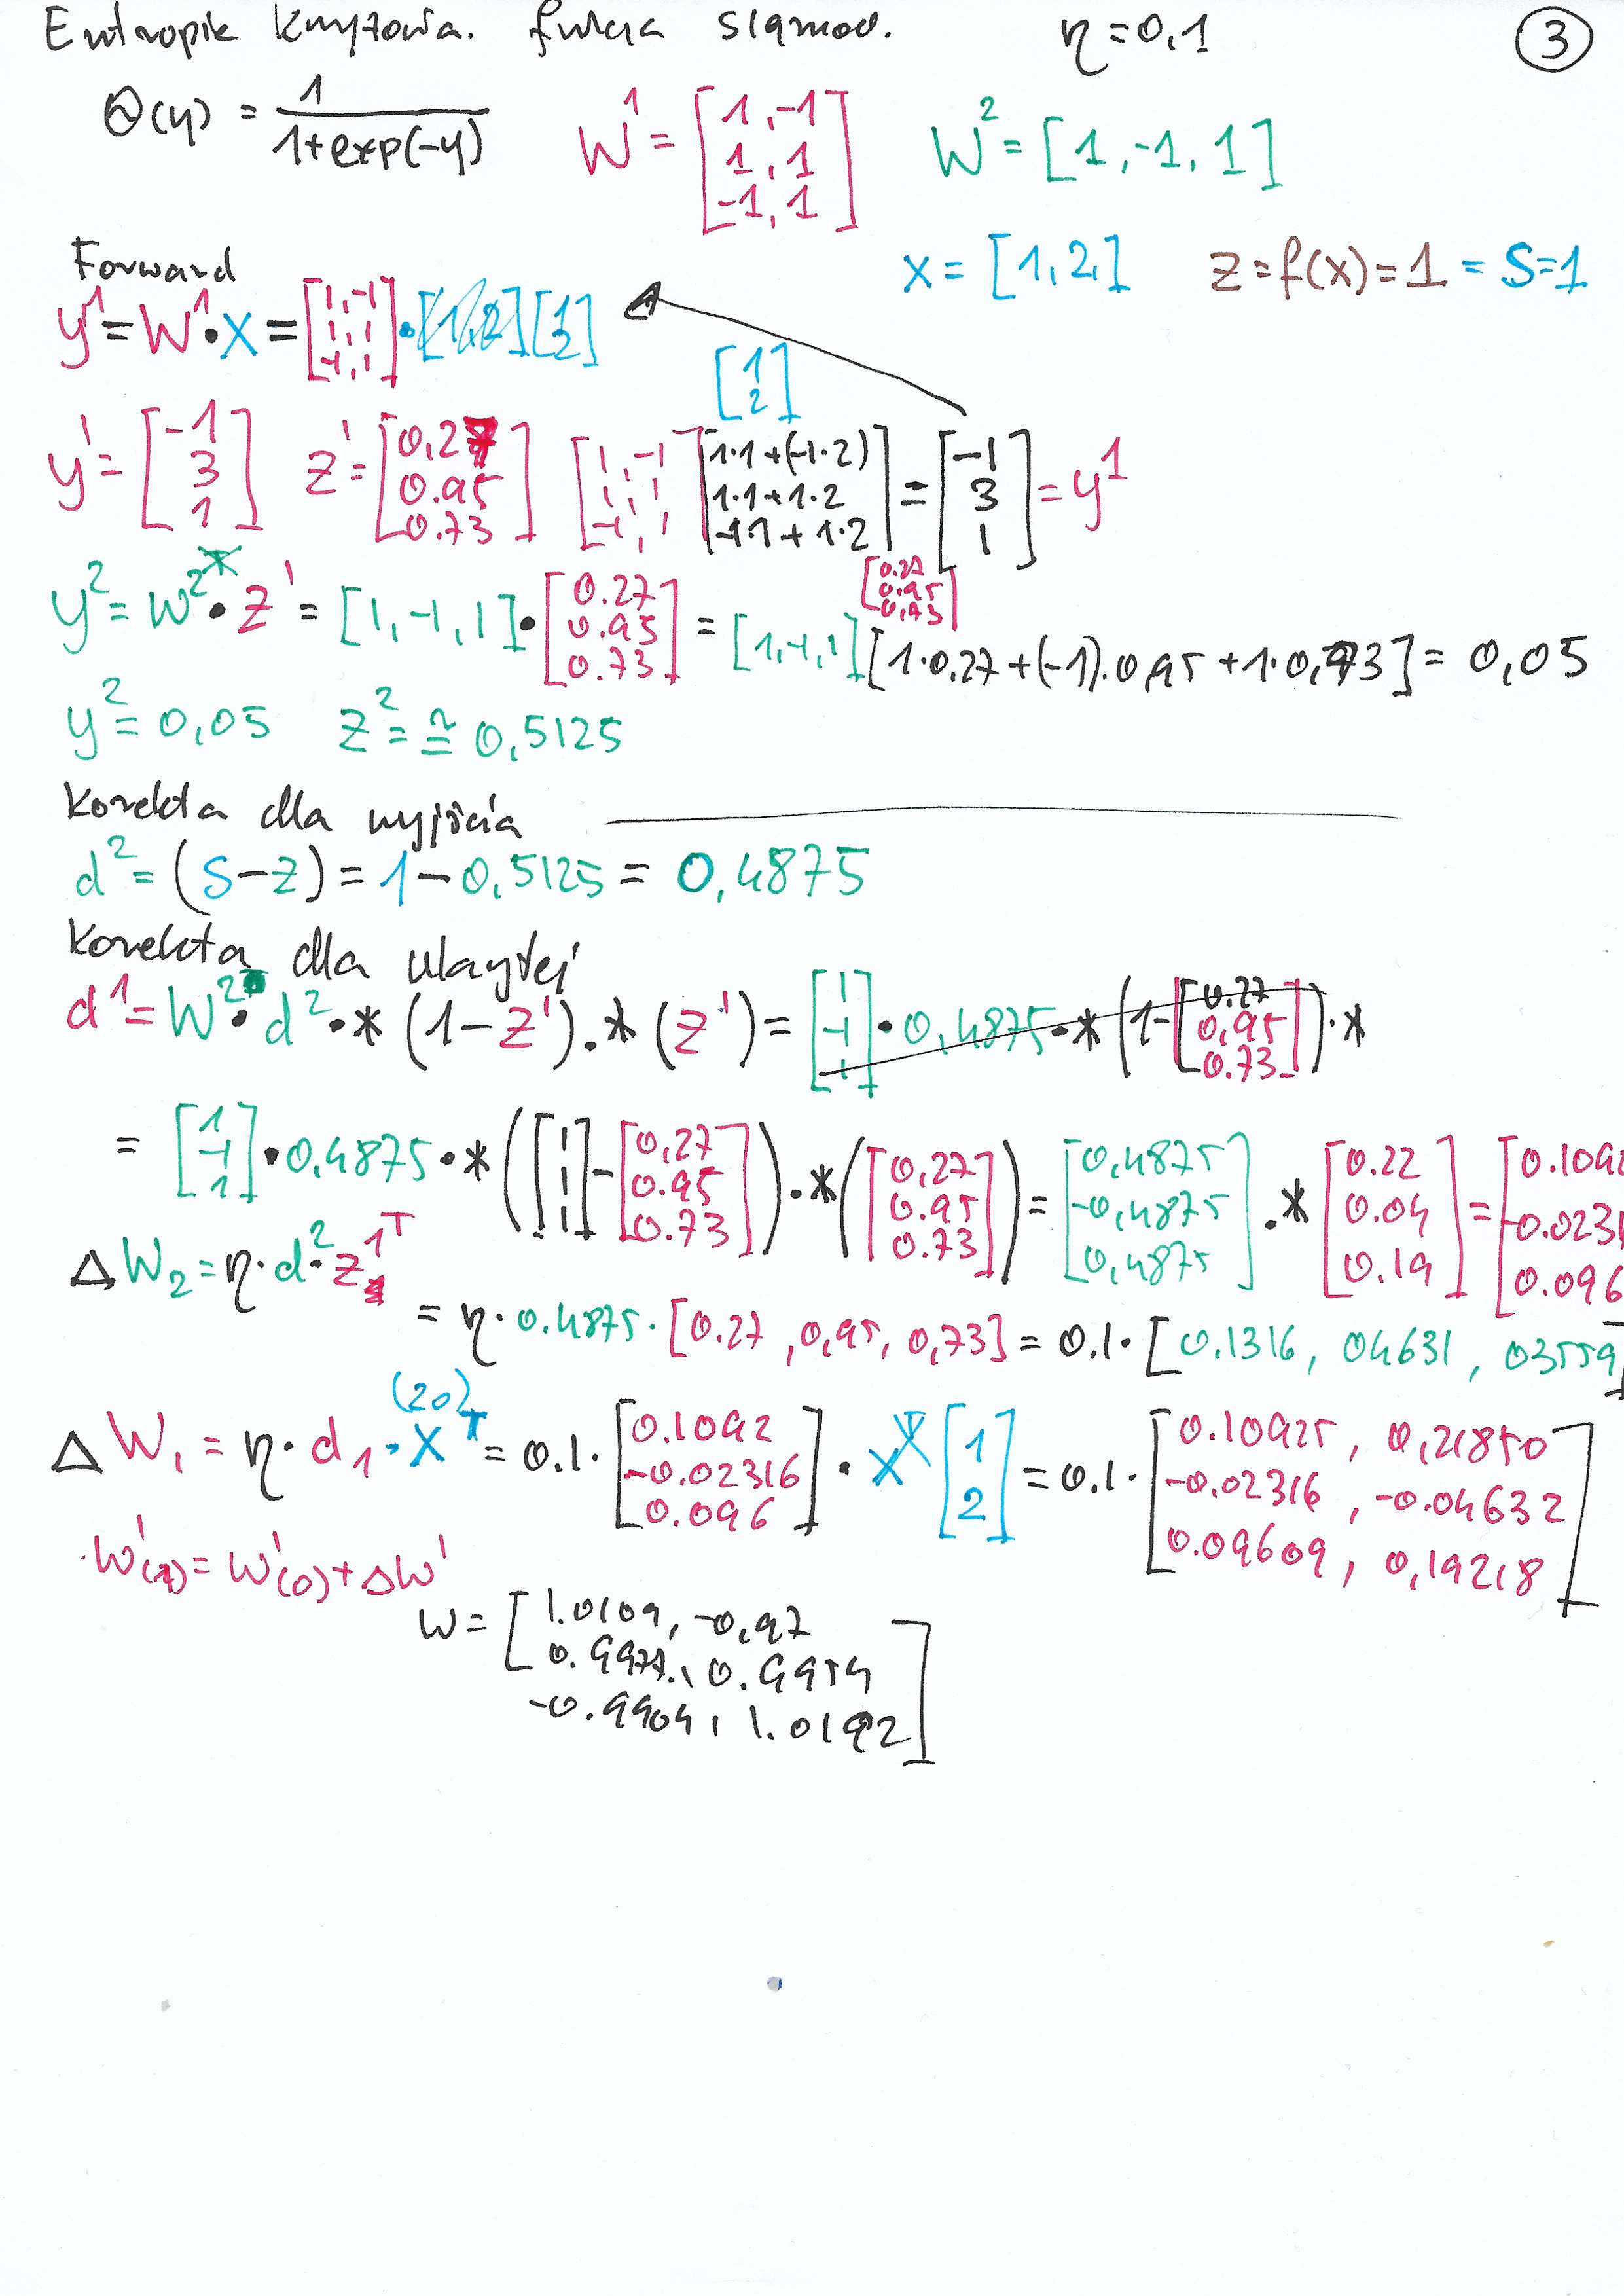 Entropie krzyżowa. funkcja sigmoid. η=0,1 3
Θ(y) = 1 / 1+exp(-y) W¹ = [1, -1; 1, 1; -1, 1] W² = [1, -1, 1]
Forward
x = [1, 2,] z = f(x) = 1 = S=1
y¹ = W¹ • X = [1, -1; 1, 1; -1, 1] • [1, 2] [1; 2]
[1; 2]
y¹ = [-1; 3; 1] z¹ = [0,27; 0.95; 0.73] [1, -1; 1, 1; -1, 1] [1·1+(-1·2); 1·1+1·2; -1·1+1·2] = [-1; 3; 1] = y¹
[0.27; 0.95; 0,73]
y² = W² • z¹ = [1, -1, 1] • [0.27; 0.95; 0.73] = [1, -1, 1] [1·0.27+(-1)·0,95+1·0,73] = 0,05
y² = 0,05 z² = ≅ 0,5125
Korekta dla wyjścia
d² = (S-z) = 1-0,5125 = 0,4875
Korekta dla ukrytej
d¹ = W² • d² .* (1-z¹) .* (z¹) = [1; -1; 1] • 0,4875 .* (1-[0.27; 0,95; 0.73]) .*
= [1; -1; 1] • 0,4875 .* ([1; 1; 1] - [0,27; 0.95; 0.73]) .* ([0,27; 0.95; 0.73]) = [0,4875; -0,4875; 0,4875] .* [0.22; 0.04; 0.19] = [0.1092; -0.0231; 0.096
ΔW₂ = η · d² · z¹ᵀ
= η · 0.4875 · [0.27, 0,95, 0,73] = 0.1 · [0.1316, 04631, 03559]
(20)
ΔW₁ = η · d₁ · Xᵀ = 0.1 · [0.1092; -0.02316; 0.096] · Xᵀ [1; 2] = 0.1 · [0.10925, 0,21850; -0,02316, -0.04632; 0.09609, 0,19218]
W¹(1) = W¹(0) + ΔW¹
W = [1.0109, -0,97; 0.9977, 0.9954; -0.9904, 1.0192]